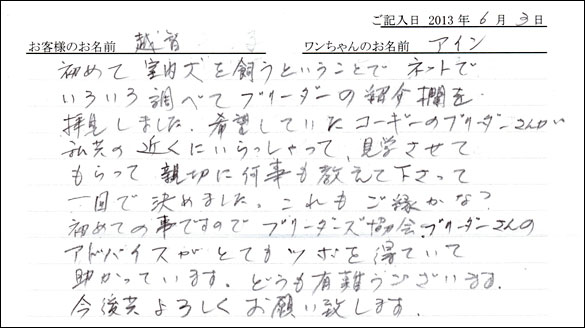 ご記入日 2013 年 6 月 3 日
お客様のお名前 越智 ワンちゃんのお名前 アイン
初めて室内犬を飼うということでネットで
いろいろ調べてブリーダーの紹介欄を
拝見しました。希望していたコーギーのブリーダーさんが
私共の近くにいらっしゃって、見学させて
もらって親切に何事も教えて下さって
一回で決めました。これもご縁かな?
初めての事ですのでブリーダーズ協会、ブリーダーさんの
アドバイスがとてもツボを得ていて
助かっています。どうも有難うございます。
今後共よろしくお願い致します。